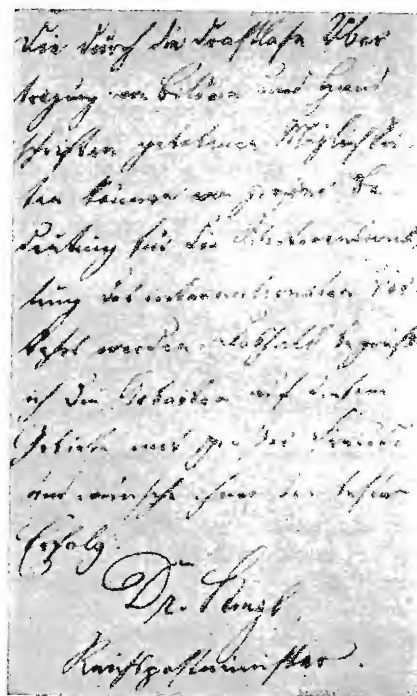 Die durch die drahtlose Über
tragung von Bildern und Hand
schriften gebotenen Möglichkei-
ten können von großer Be
deutung für die
des internationalen Ver
kehrs werden. Deshalb begrüße
ich die Arbeiten auf diesem
Gebiete mit Freude
und wünsche ihnen den besten
Erfolg.
Dr. Stingl.
Reichspostminister.